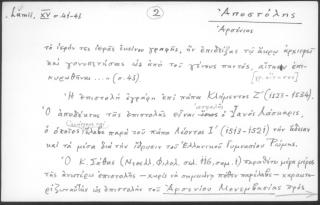 Λάμπ. XV σ. 41-43
2
Ἀποστόλης
Ἀρσένιος
τὸ ἱερόν τις ἱερῶς ἐκείνῳ γραφῆς, ἂν ἐπιδείξας τῷ ἄκρῳ ἀρχιερεῖ
καὶ γονυπετήσας ὡς ἀπὸ τοῦ γένους παντός,
" (σ. 43)
Ἡ ἐπιστολὴ ἐγράφη ἐπὶ πάπα Κλήμεντος Ζ' (1523-1534).
Ὁ ἀποδέκτης τῆς ἐπιστολῆς εἶναι ἀσφαλῶς ὁ Ἰανὸς Λάσκαρις,
ὁ ὁποῖος ἔλαβε παρὰ τοῦ πάπα Λέοντος Ι' (1513-1521) τὴν ἄδειαν
καὶ τὰ μέσα διὰ τὴν ἵδρυσιν τοῦ Ἑλληνικοῦ Γυμνασίου Ρώμης.
Ὁ Κ. Σάθας (Νεοελλ. Φιλολ. σελ. 126, σημ. 1) παραθέτει μέρη
τῆς ἀνωτέρω ἐπιστολῆς - χωρὶς νὰ σημειώνῃ πόθεν παρέλαβε - χαρακτη-
ρίζων αὐτὴν ὡς ἐπιστολὴν τοῦ Ἀρσενίου Μονεμβασίας πρὸς